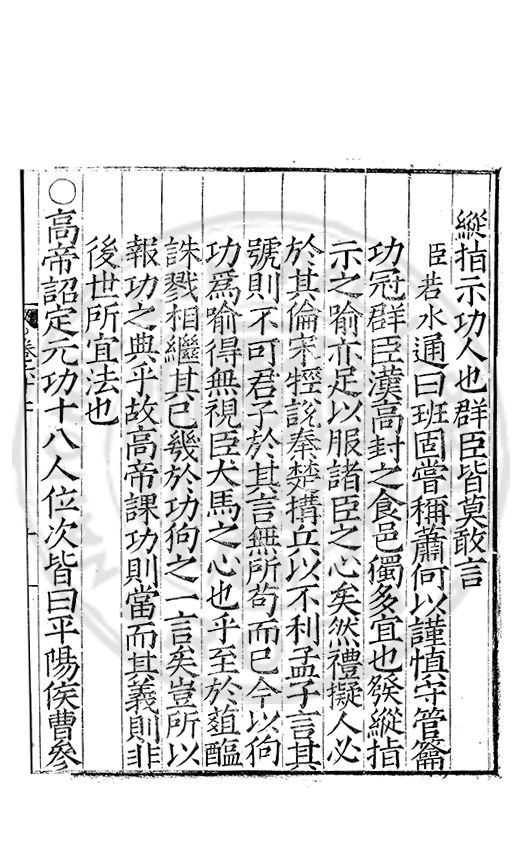 縱指示功人也群臣皆莫敢言
臣若水通曰班固嘗稱蕭何以謹慎守管籥
功冠群臣漢高封之食邑獨多宜也發縱指
示之喻亦足以服諸臣之心矣然禮擬人必
於其倫宋牼說秦楚搆兵以不利孟子言其
號則不可君子於其言無所茍而已今以狗
功爲喻得無視臣犬馬之心也乎至於葅醢
誅戮相繼其已幾於功狗之一言矣豈所以
報功之典乎故高帝課功則當而其義則非
後世所宜法也
○高帝詔定元功十八人位次皆曰平陽侯曹參